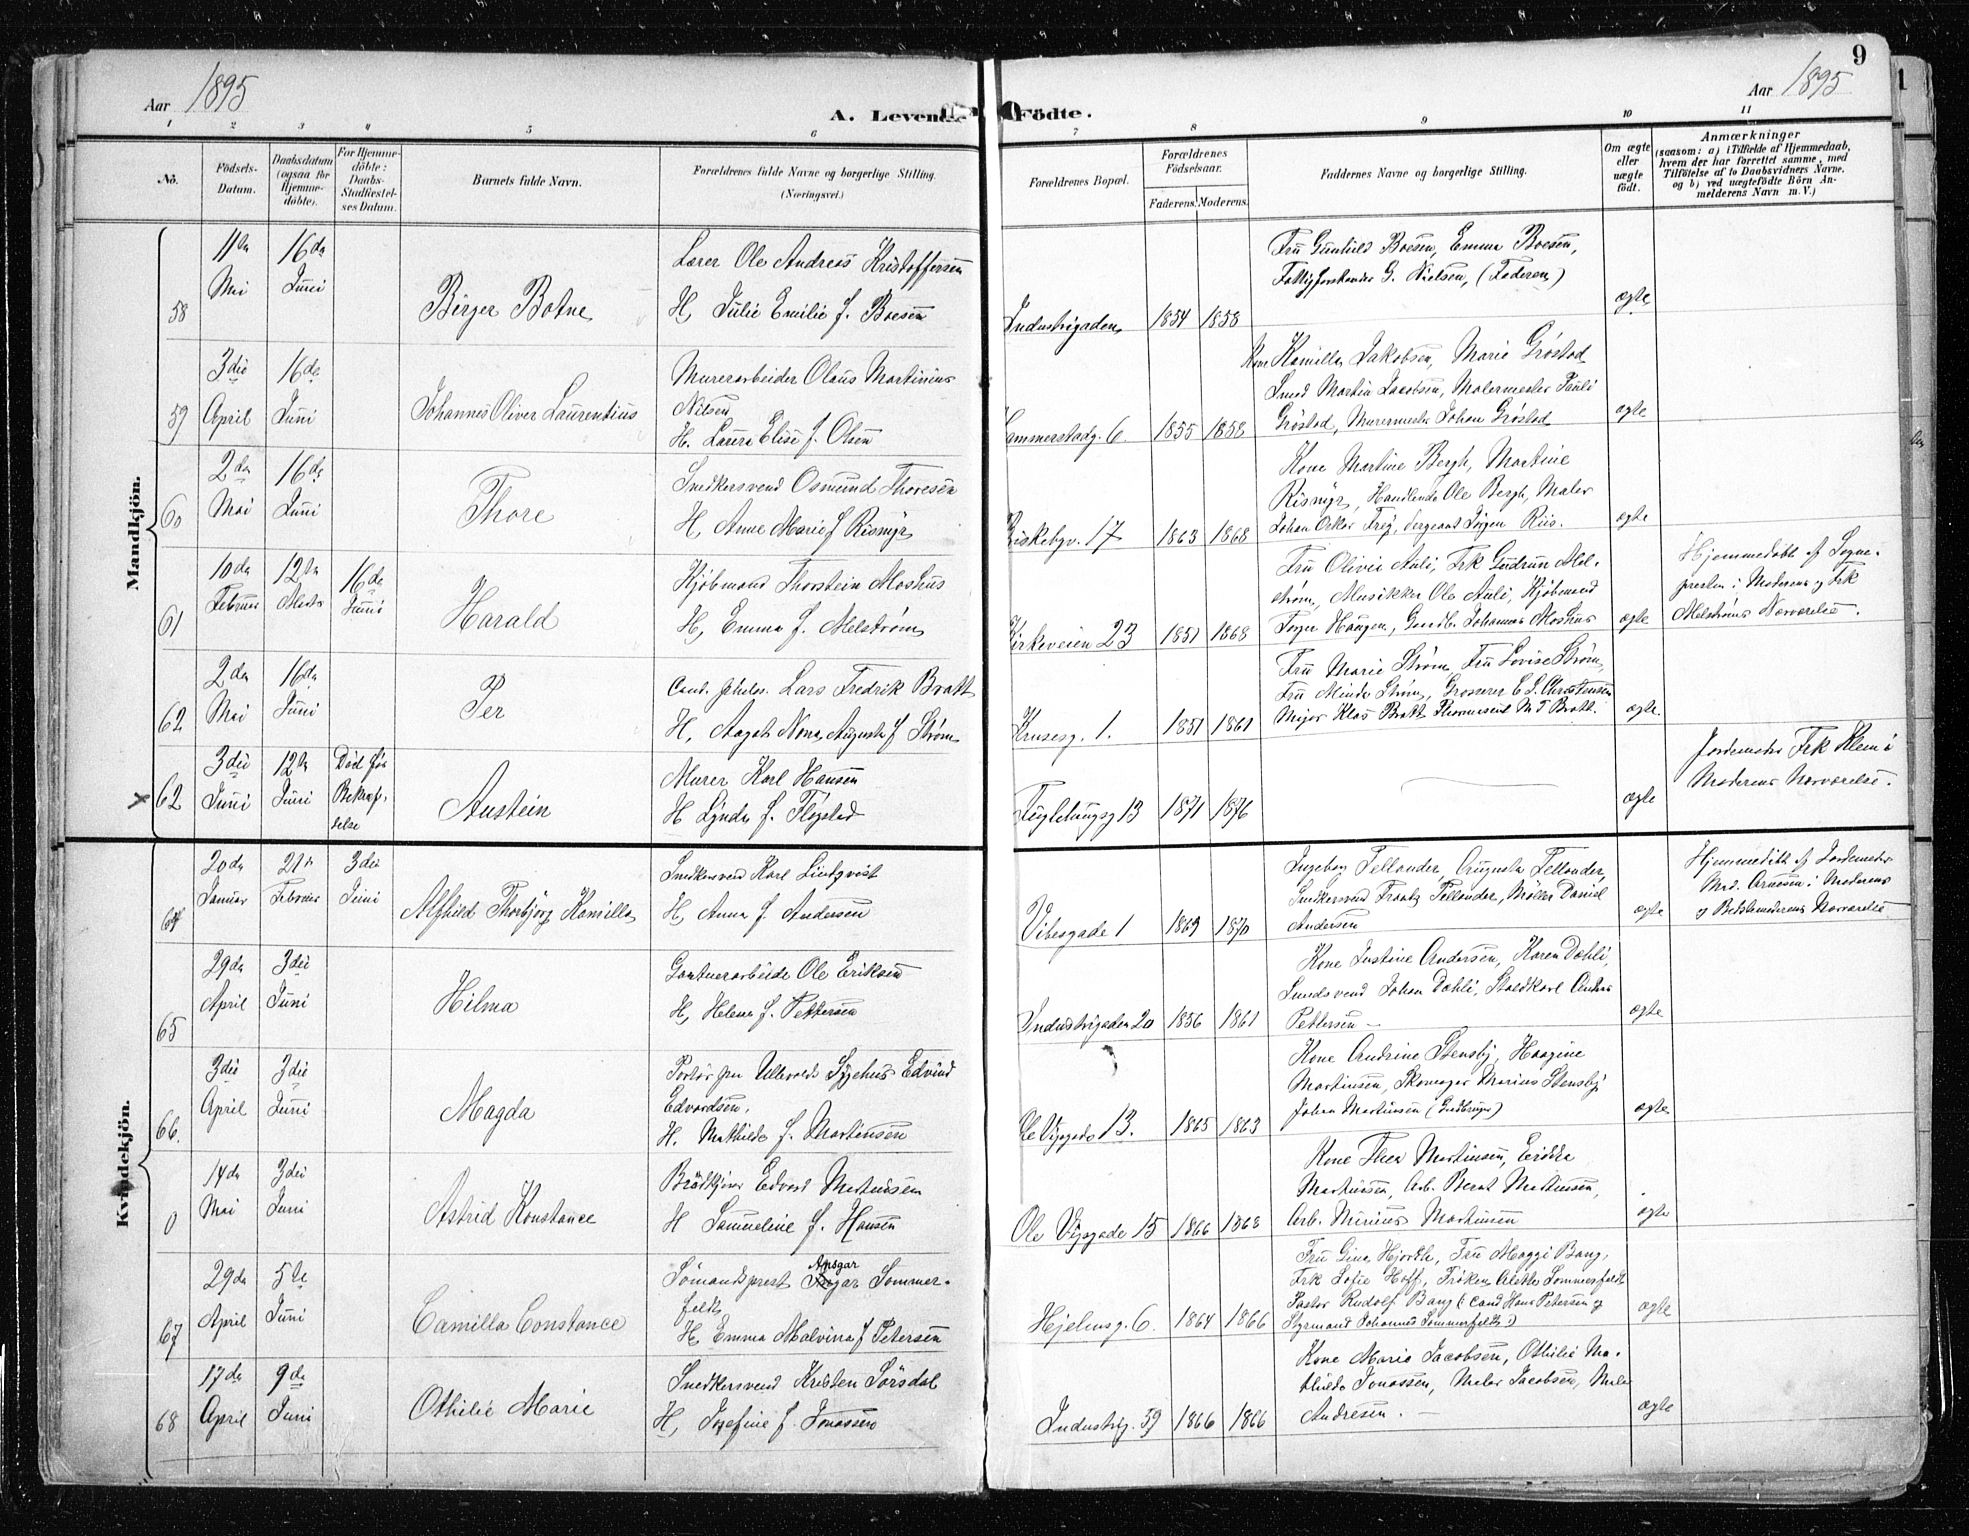 9
Aar 1895
A. Levende Födte.
Aar 1895
1 2 3 4 5 6 7 8 9 10 11
No.
Födsels-Datum.
Daabsdatum (ogsaa for Hjemme-döbte).
For Hjemme-döbte: Daabs-Stadfæstel-ses Datum.
Barnets fulde Navn.
Forældrenes fulde Navne og borgerlige Stilling. (Næringsvei.)
Forældrenes Bopæl.
Forældrenes Födselsaar.
Faderens. Moderens.
Faddernes Navne og borgerlige Stilling.
Om ægte eller uægte födt.
Anmærkninger
(saasom: a) i Tilfælde af Hjemmedaab,
hvem der har forrettet samme, med
Tilföielse af to Daabsvidners Navne.
og b) ved uægtefödte Börn An-
melderens Navn m. V.)
Mandkjön.
58
11te Mai
16de Juni
Birger Botne
Lærer Ole Andreas Kristoffersen
H, Julie Emilie f. Boesen
Industrigaden
1854 1858
Fru Gunhild Boesen, Emma Boesen,
G. Nielsen, (Faderen)
ægte
59
3die April
16de Juni
Johannes Oliver Laurentius
Murerarbeider Olaus Martinius
Nilsen
H. Laura Elise f. Olsen
Hammerstadg. 6.
1855 1858
Kone Kamilla Jakobsen, Marie Grøstad
Smed Martin Jacobsen, Malermester Pauli
Grøstad, Murermester Johan Grøstad
ægte
60
2den Mai
16de Juni
Thore
Snedkersvend Osmund Thoresen
H, Anne Marie f Risnyr
Briskebyv. 17
1863 1868
Kone Martine Bergh, Martine
Rismyr, Handlende Ole Bergh, Maler
Johan Oskar Frey, Sergeant Jørgen Riis.
ægte
61
10de Februar
12te Marts
16de Juni
Harald
Kjøbmand Thorstein Moshus
H, Emma f. Melstrøm
Kirkeveien 23
1851 1868
Fru Olivie Auli, Frk Gudrun Mel-
strøm, Musikker Ole Auli, Kjøbmand
Torger Haugen, Gaardb. Johannes Moshus
ægte
Hjemmedøbt af Sogne-
presten i Moderens og Frk
Melstrøms Nærværelse.
62
2den Mai
16de Juni
Per
Cand. philos. Lars Fredrik Bratt
H, Aagot Nona Augusta f Strøm
Krusesg. 1.
1851 1861
Fru Marie Strøm, Fru Lovise Strøm,
Fru Minda Strøm, Grosserer E S. Christensen
Major Klas Bratt M T Bratt.
ægte.
62
3die Juni
12te Juni
Død før Bekræf-telse
Austein
Murer Karl Hansen
H Lynda f. Fløystad
Fuglehaugsg 13
1871 1876
ægte
Jordemoder Frk Klem i
Moderens Nærværelse.
Kvindekjön.
64
20de Januar
21de Februar
3die Juni
Alfhild Thorbjørg Kamilla
Snedkersvend Karl Lindqvist
H, Anna f. Andersen
Vibesgade 1
1869 1870
Ingeborg Fellander, Augusta Fellander,
Snedkersvend Frantz Fellander, Møller Daniel
Andersen
ægte
Hjemmedøbt af Jordemoder
Mad. Arnesen i Moderens
og Bedstemoderens Nærværelse
65
29de April
3die Juni
Hilma
Gartnerarbeide Ole Eriksen
H, Helena f. Pettersen
Industrigaden 20
1856 1861
Kone Justine Andersen, Karen Dæhli,
Smedsvend Johan Dæhli, Staldkarl Anders
Pettersen –
ægte
66.
3die April
3die Juni
Magda
Portør paa Ullevolds Sygehus Edvind
Edvardsen,
H. Mathilde f. Martinsen
Ole Vigsgade 13.
1865 1863
Kone Andrine Stensby, Haagine
Martinsen, Skomager Marius Stensby
Johan Martinsen (Gaardbruger)
ægte
0
14de Mai
3die Juni
Astrid Konstance
Brødkjører Edvard Martinsen
H Samueline f. Hansen
Ole Vigsgade 15
1866 1868
Kone Thea Martinsen, Erikka
Martinsen, Arb. Bernt Martinsen,
Arb. Minius Martinsen
ægte
67
29de April
5te Juni
Camilla Constance
Sømandsprest Apsgar Sommer-
feldt
H, Emma Malvina f Petersen
Hjelmsg. 6.
1864 1866
Fru Gina Hjorth, Fru Maggi Bang,
Frk Sofie Hoff, Frøken Alette Sommerfeldt
Pastor Rudolf Bang (: Cand Hans Petersen og
Styrmand Johannes Sommerfeldt:)
ægte
68
17de April
9de Juni
Othilie Marie
Snedkersvend Kristen Sørsdal
H, Josefine f. Jonassen
Industrig. 59
1866 1866
Kone Marie Jacobsen, Othilie Ma-
thilde Jonassen, Maler Jacobsen, Maler
Andresen. –
ægte